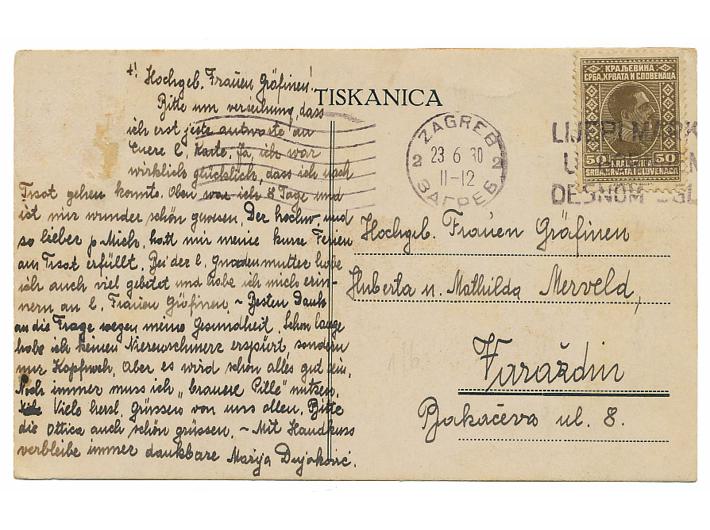 +! Hochgeb. Frauen Gräfinen!
Bitte um verzeihung, dass
ich erst jetzt antworte an
Euere l. Karte. Ja, ich war
wirklich glücklich, dass ich nach
Trsat gehen konnte. Oben war ich 8 Tage und
ist mir wunder schön gewesen. Der hochw. und
so lieber p. Mich. hatt mir meine kurze Ferien
am Trsat erfüllt. Bei der l. gnadenmutter habe
ich auch viel gebetet und habe ich mich erin-
nern an l. Frauen Gräfinen. ~ Besten Dank
an die Frage wegen meine Gesundheit. Schon lange
habe ich keinen Nierenschmerz erspürt, sondern
nur Kopfweh. Aber es wird schon alles gut sein.
Noch immer muss ich "brauere Pille" nützen.
Viele herzl. Grüssen von uns allen. Bitte
die Ottica auch schön grüssen. ~ Mit Handkuss
verbleibe immer dankbare Marija Dujaković.
TISKANICA
ZAGREB
2 23 6 30 2
11-12
ЗАГРЕБ
LIJEPI MARK
U
DESNOM UGL
КРАЉЕВИНА
СРБА, ХРВАТА И СЛОВЕНАЦА
50 50
KRALJEVINA
SRBA, HRVATA I SLOVENACA
Hochgeb. Frauen Gräfinen
Huberta u. Mathilda Merveld,
Varaždin
Bakačeva ul. 8.